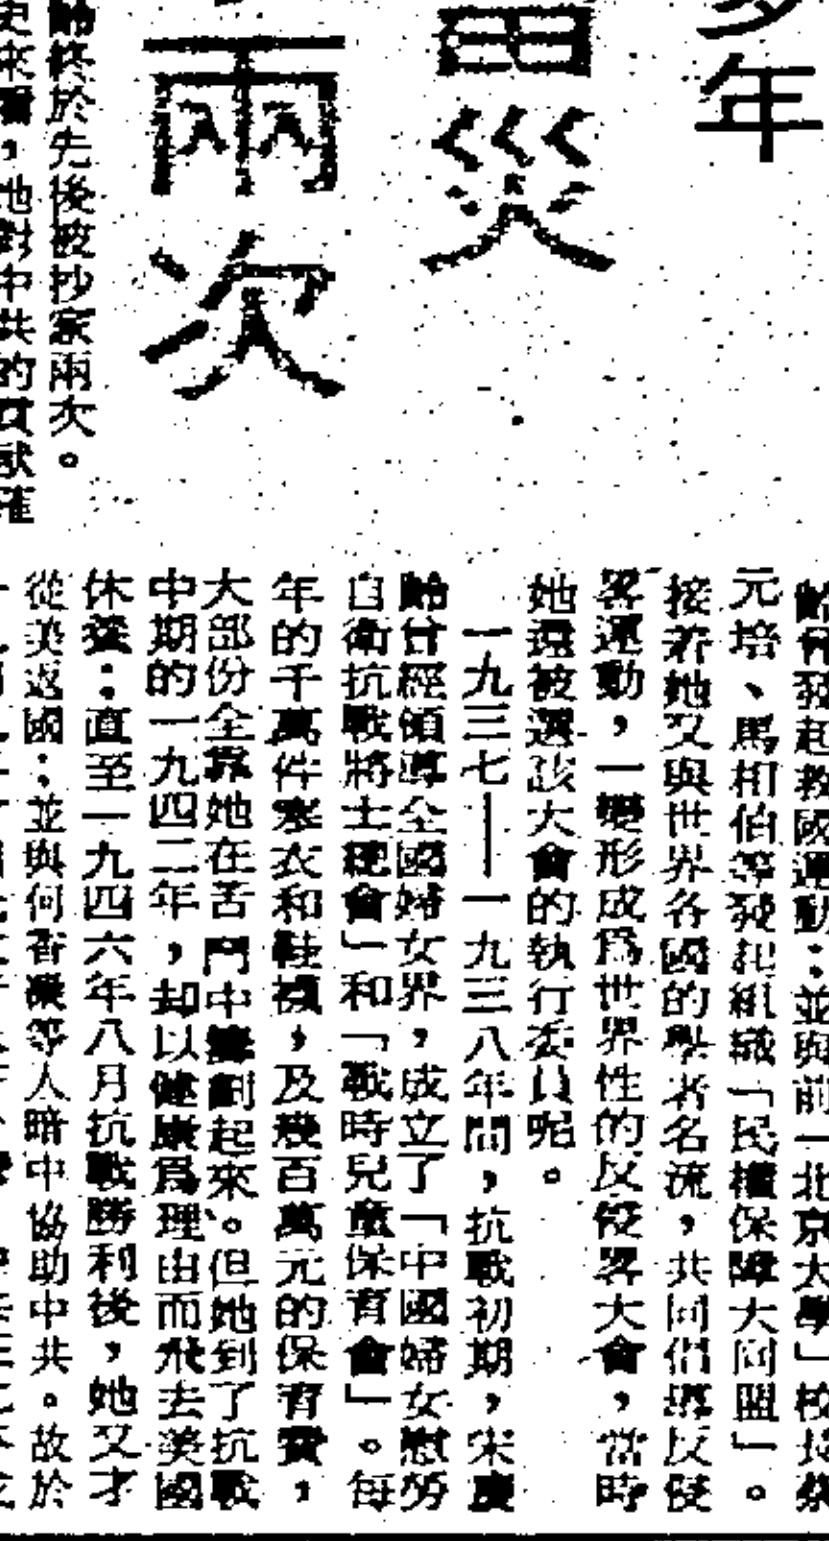 多年
災
兩次
齡終於先後被抄家兩次。
史來看，她對中共的貢獻確
齡曾發起救國運動；並與前「北京大學」校長蔡
元培、馬相伯等發起組織「民權保障大同盟」。
接着她又與世界各國的學者名流，共同倡導反侵
畧運動，一變形成爲世界性的反侵畧大會，當時
她還被選該大會的執行委員呢。
一九三七——一九三八年間，抗戰初期，宋慶
齡曾經領導全國婦女界，成立了「中國婦女慰勞
自衛抗戰將士總會」和「戰時兒童保育會」。每
年的千萬件寒衣和鞋襪，及幾百萬元的保育費，
大部份全靠她在苦鬥中籌劃起來。但她到了抗戰
中期的一九四二年，却以健康爲理由而飛去美國
休養；直至一九四六年八月抗戰勝利後，她又才
從美返國；並與何香凝等人暗中協助中共。故於